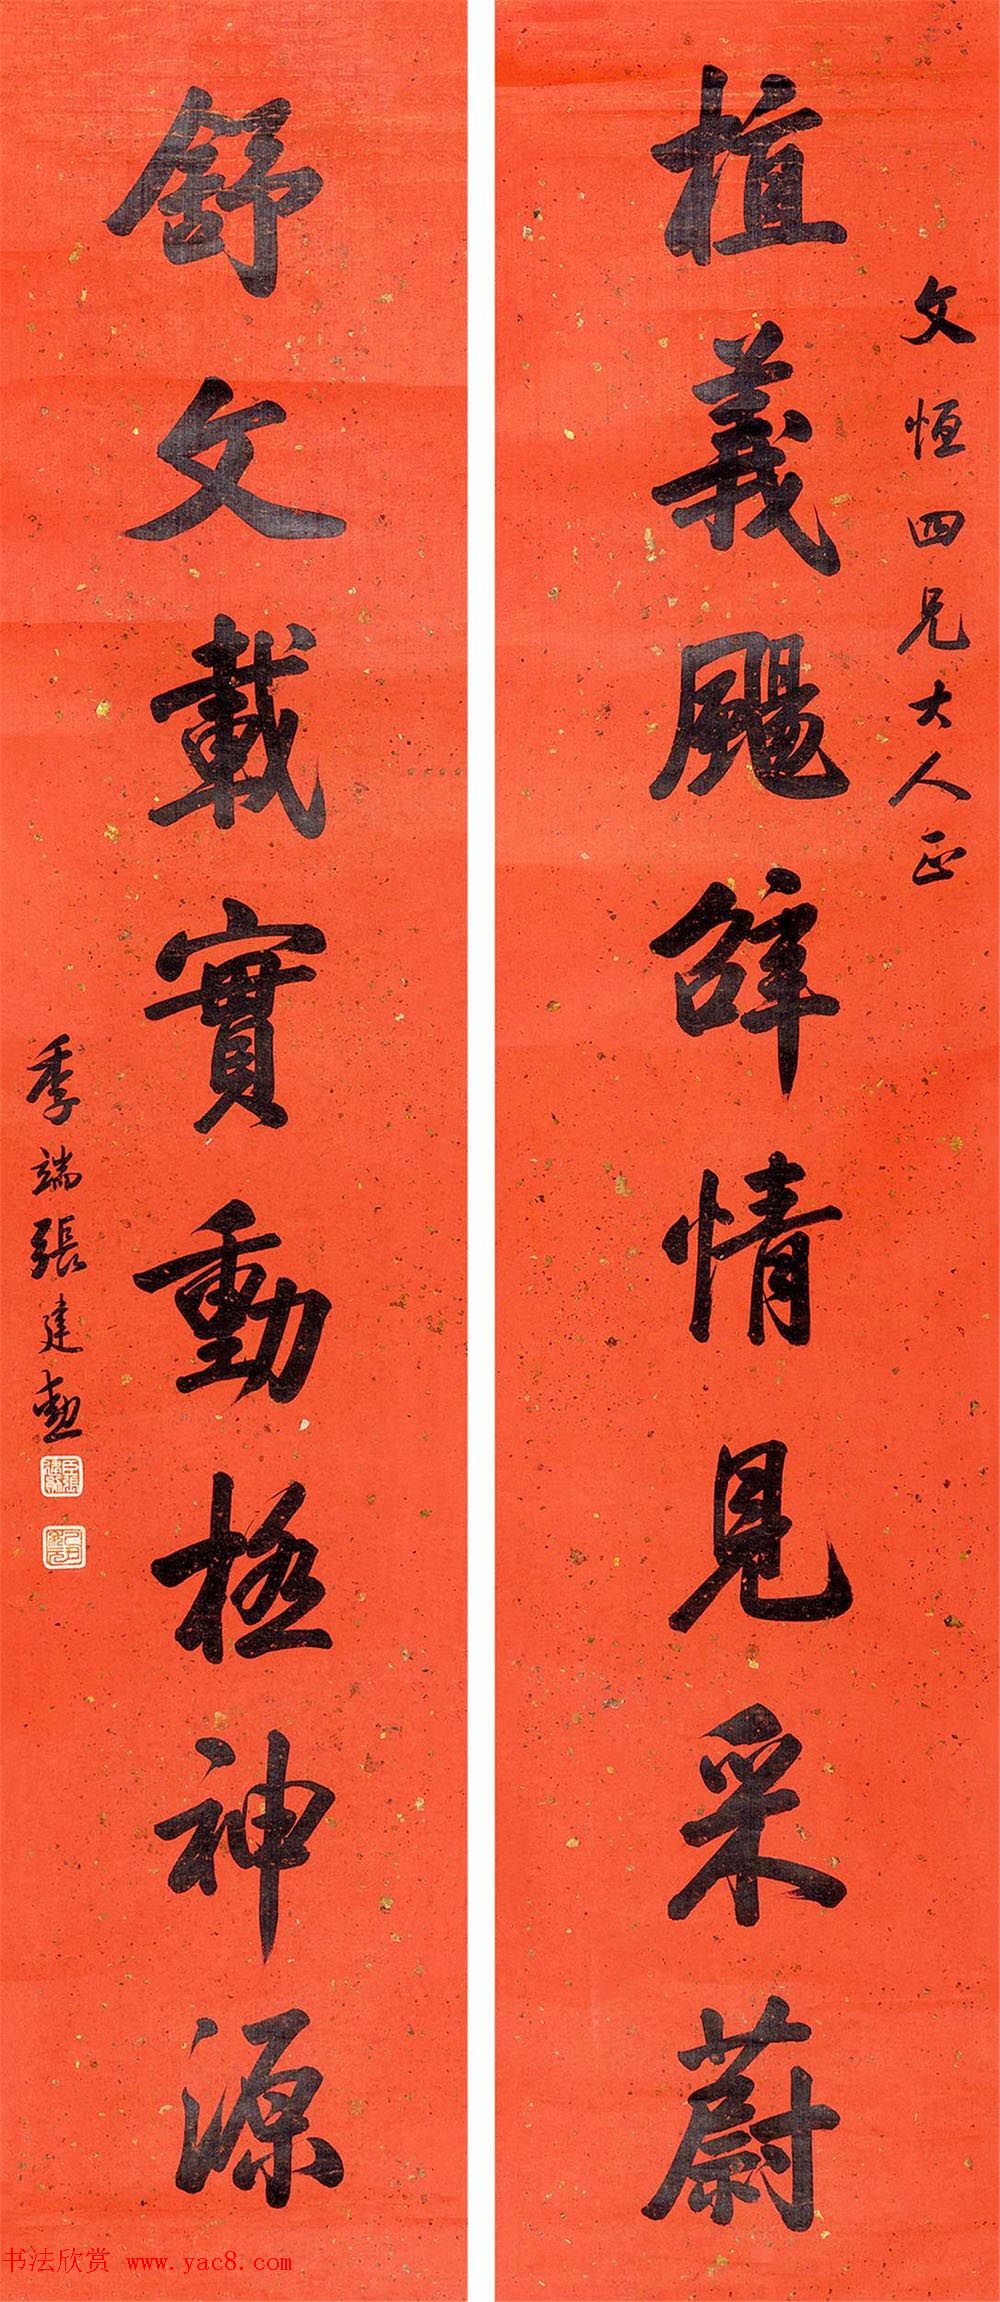 文恒四兄大人正
植義颺辭情見采蔚
舒文載實動極神源
季端張建勳
书法欣赏 www.yac8.com